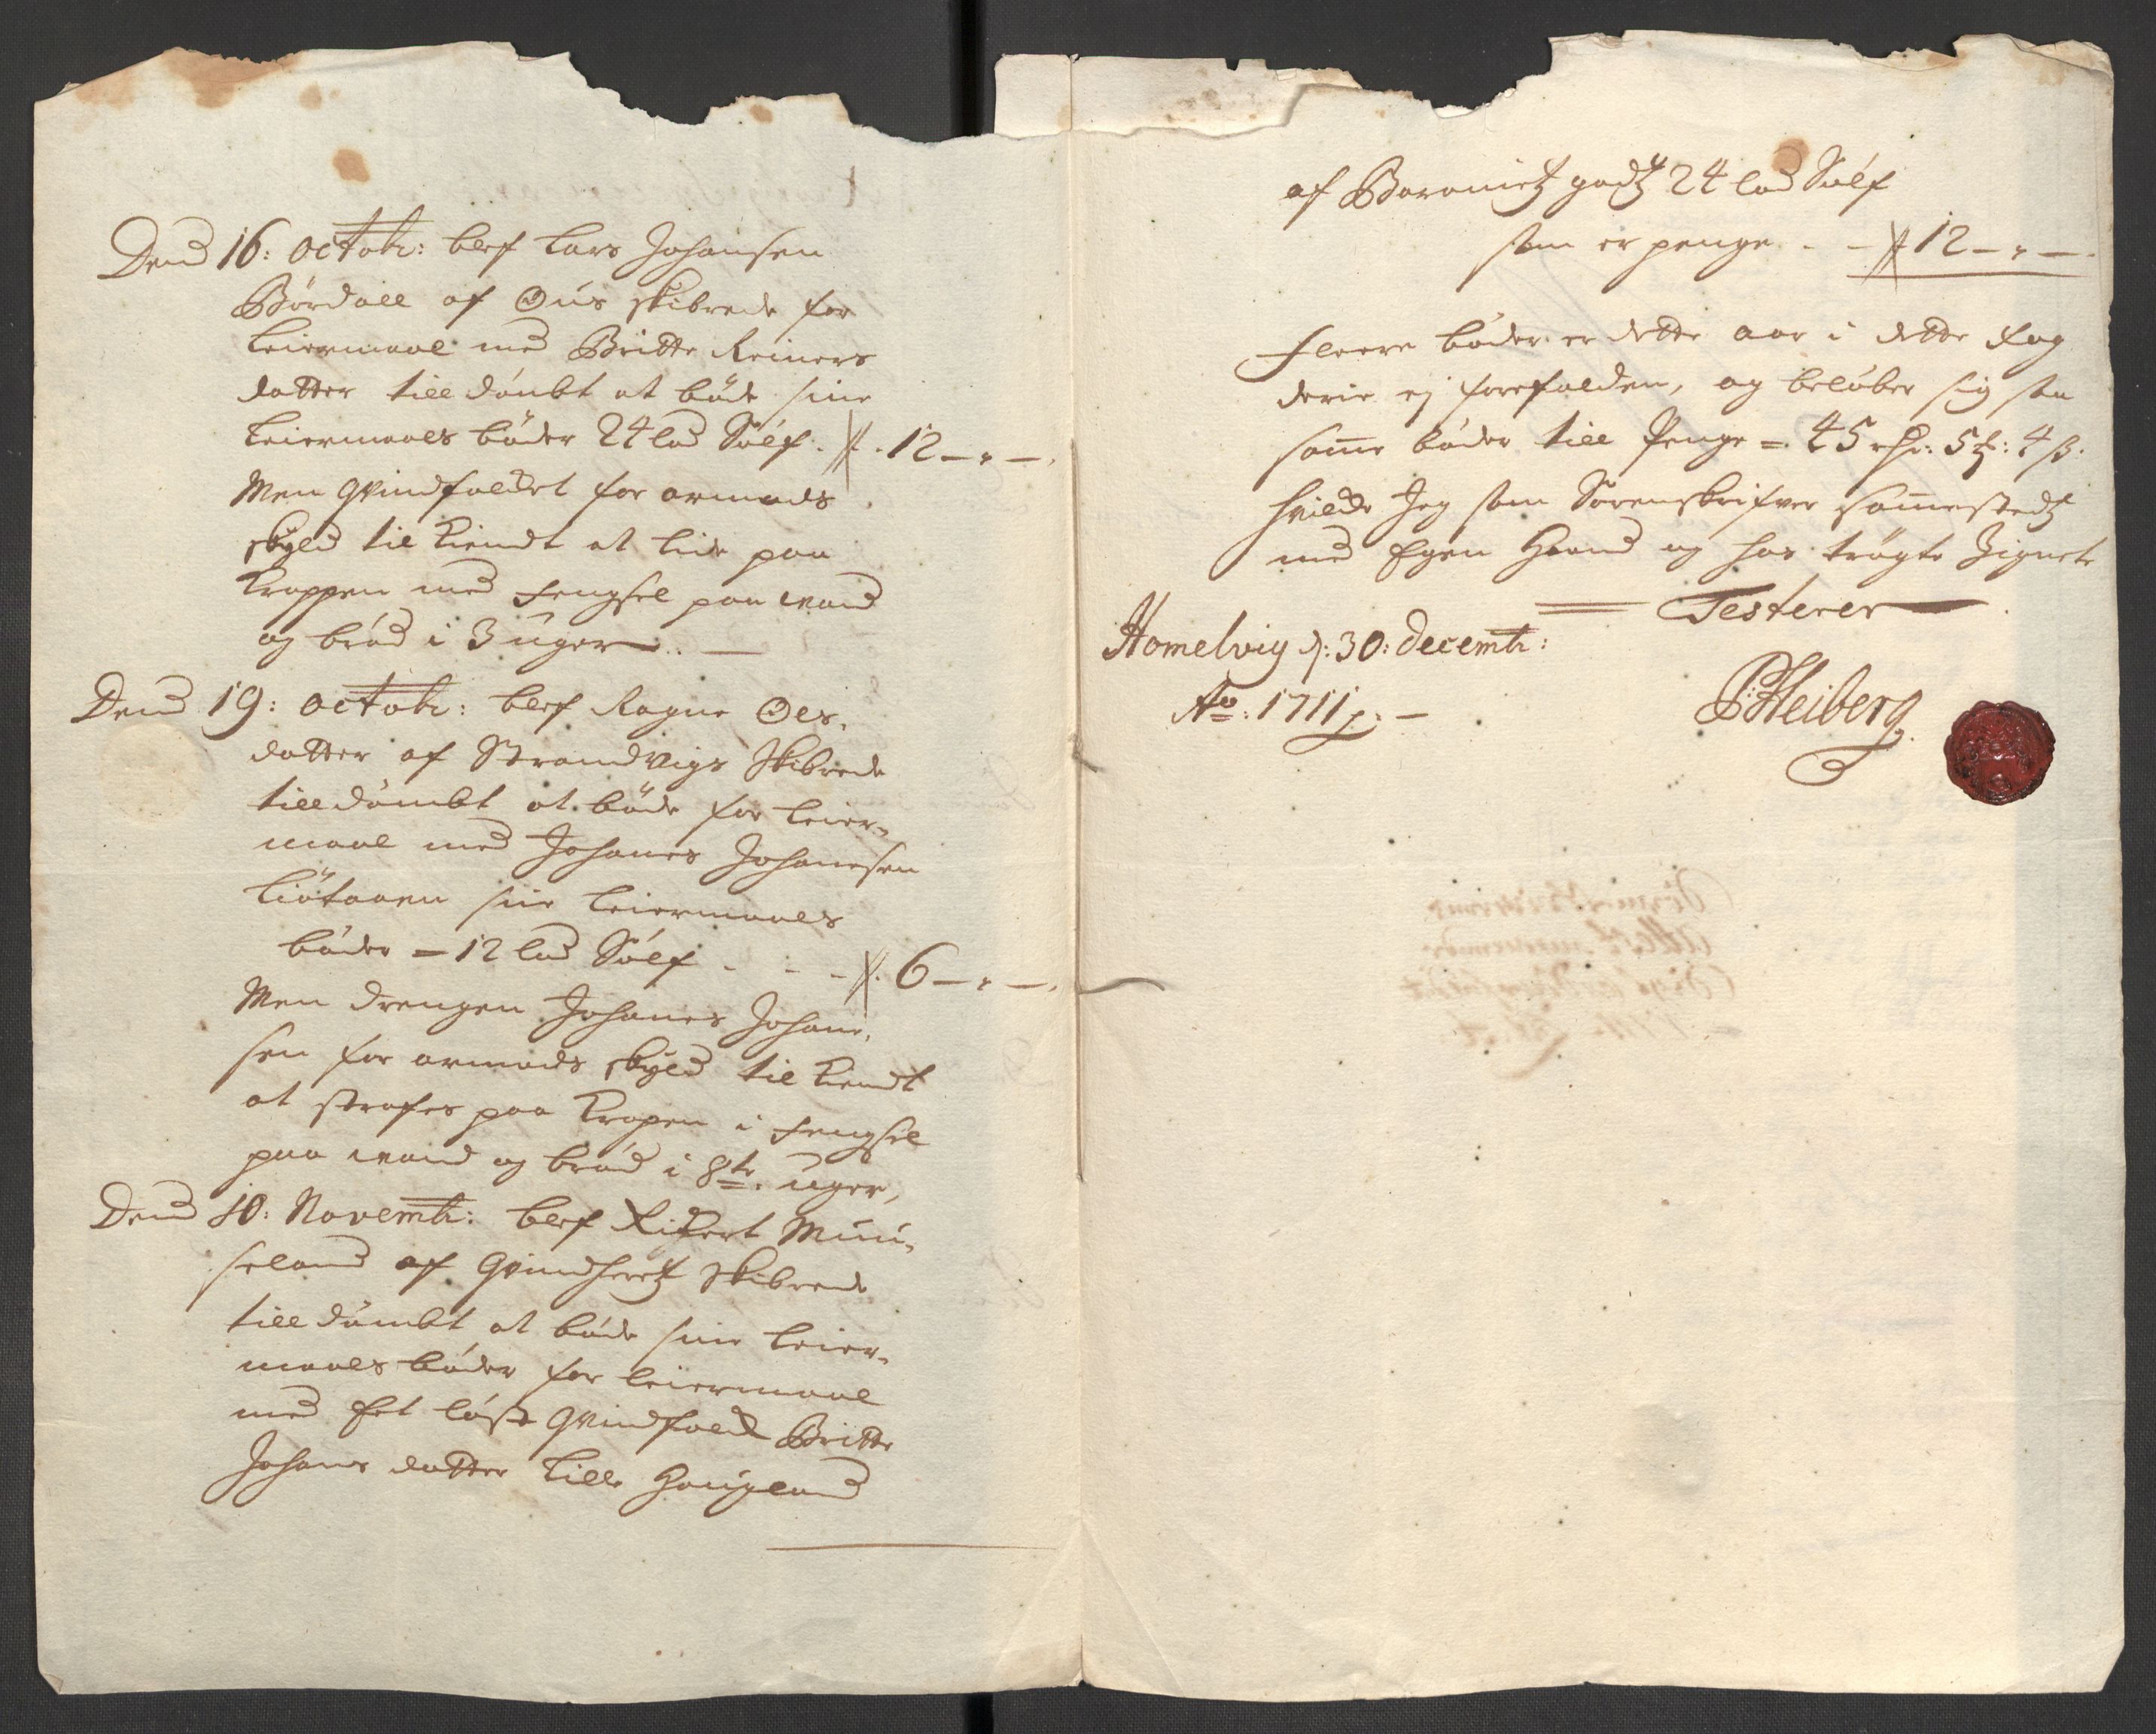 Dend 16: octobr: blef Lars Johansen
Børdall af Ous skibrede for
Leiermaal med Britte Reiners
datter till dømbt at bøde sine
Leiermaals bøder 24 lod Sølf. 12 - " -
Men Qvindfolket for armods
skyld til kiendt at lide paa
Kroppen med fengsel paa vand
og brød i 3 uger.
Dend 19: octobr: blef Ragne Oels
datter af Strandvigs Skibrede
till dømbt at bøde for leier-
maal med Johanes Johanesen
Liøtaaen sine leiermaals
bøder = 12 lod Sølf - - - 6 - " -
Men drengen Johanes Johane-
sen for armods skyld til kiendt
at strafes paa kropen i fengsel
paa vand og brød i 8te uger,
Dend 10: Novembr: blef Sifert Muu-
seland af Qvindheretz Skibrede
till dømbt at bøde sine leier-
maals bøder for leiermaal
med Et løst Qvindfolck Britte
Johans datter Lille Hougland
af Baronietz godtz 24 lod Sølf
som er penge - - 12 - " -
fleere bøder er dette aar i dette fog
derie ej forefalden, og beløber sig saa
same bøder till Penge = 45 rdr: 5 : 4 ß.
hvilcke Jeg som Sorenskrifver samestedtz
med Egen Haand og hos trøgte Zignete
Testerer
Homelvig d: 30: decembr:
Ao: 1711
P Heiberg